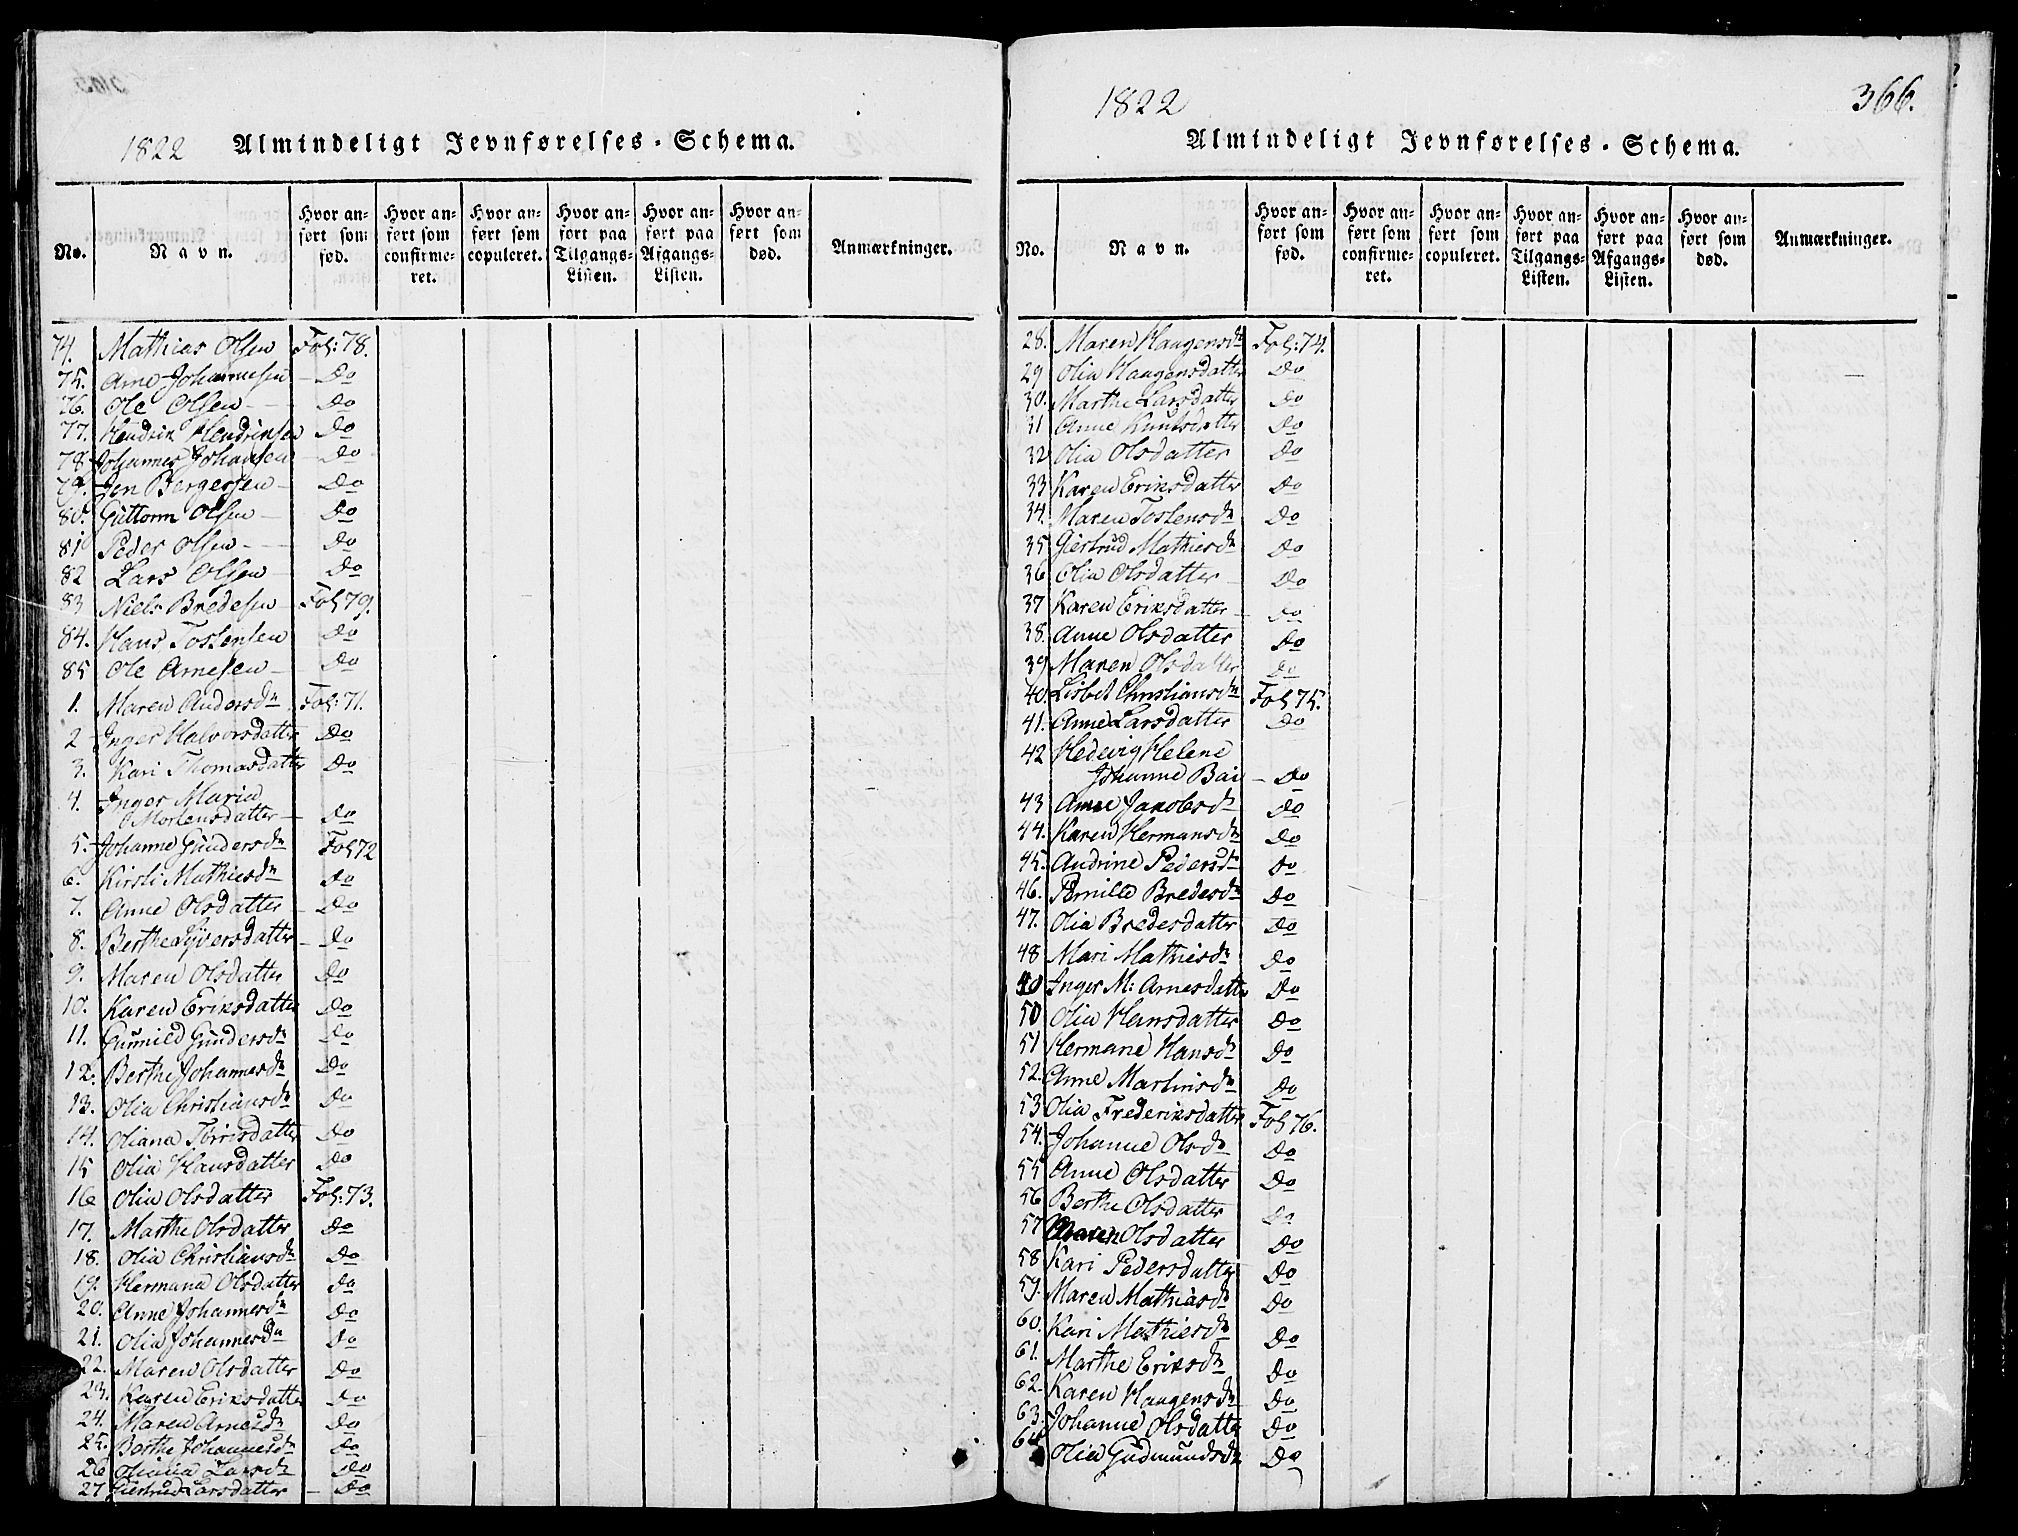 1822 Almindeligt Jevnførelses-Schema.
No. Navn. Hvor anført som fød. Hvor anført som confirmeret. Hvor anført som copuleret. Hvor anført paa Tilgangs-Listen. Hvor anført paa Afgangs-Listen. Hvor anført som død. Anmærkninger.
74. Mathias Olsen Fol: 78.
75. Arne Johannesen Do
76. Ole Olsen Do
77. Hendrik Hendriksen Do
78. Johannes Johansen Do
79. Jen Bergersen Do
80. Guttorm Olsen Do
81 Peder Olsen Do
82 Lars Olsen Do
83 Niels Bredesen Fol 79.
84. Hans Tostensen Do
85 Ole Arnesen Do
1. Maren Andersdr Fol: 71.
2 Inger Halvorsdatter Do
3. Kari Thomasdatter Do
4. Inger Maria
Mortensdatter Do
5. Johanne Gundersdr Fol 72
6. Kirsti Mathiesdr Do
7. Anne Olsdatter Do
8. Berthe Syversdatter Do
9. Maren Olsdatter Do
10. Karen Eriksdatter Do
11. Gunnild Gundersdr Do
12. Berthe Johannesdr Do
13. Olia Christiansdr Do
14. Oliana Torrisdatter Do
15 Olia Hansdatter Do
16 Olia Olsdatter Fol: 73.
17. Marthe Olsdatter Do
18. Olia Christiansdr Do
19. Hermana Olsdatter Do
20. Anne Johannesdr Do
21. Olia Johannesdr Do
22. Maren Olsdatter Do
23. Karen Eriksdatter Do
24. Maren Arnesdr Do
25. Berthe Johannesdr Do
26 Oliana Larsdr Do
27 Giertrud Larsdatter Do
1822 366.
Almindeligt Jevnførelses-Schema.
No. Navn. Hvor anført som fød. Hvor anført som confirmeret. Hvor anført som copuleret. Hvor anført paa Tilgangs-Listen. Hvor anført paa Afgangs-Listen. Hvor anført som død. Anmærkninger.
28. Maren Haagensdr Fol: 74.
29 Olia Haagensdatter Do
30. Marthe Larsdatter Do
31 Anne Knutsdatter Do
32 Olia Olsdatter Do
33 Karen Eriksdatter Do
34. Maren Tostensdr Do
35 Giertrud Mathiesdr Do
36 Olia Olsdatter Do
37 Karen Eriksdatter Do
38. Anne Olsdatter Do
39 Maren Olsdatter Do
40. Lisbet Christiansdr Fol 75.
41. Anne Larsdatter Do
42 Hedevig Helene
Johanne Bai Do
43 Anne Jakobsdr Do
44. Karen Hermansdr Do
45. Andrine Pedersdr Do
46. Pernille Bredesdr Do
47. Olia Bredesdatter Do
48 Mari Mathiesdr Do
49 Inger M: Arnesdatter Do
50 Olia Hansdatter Do
51 Hermane Hansdr Do
52. Anne Martinsdr Do
53 Olia Frederiksdatter Fol 76.
54. Johanne Olsdr Do
55 Anne Olsdatter Do
56 Berthe Olsdatter Do
57 Maren Olsdatter Do
58 Kari Pedersdatter Do
59. Maren Mathiasdr Do
60. Kari Mathiesdr Do
61. Marthe Eriksdr Do
62. Karen Haagensdr Do
63. Johanne Olsdatter Do
64 Olia Gudmundsdr Do